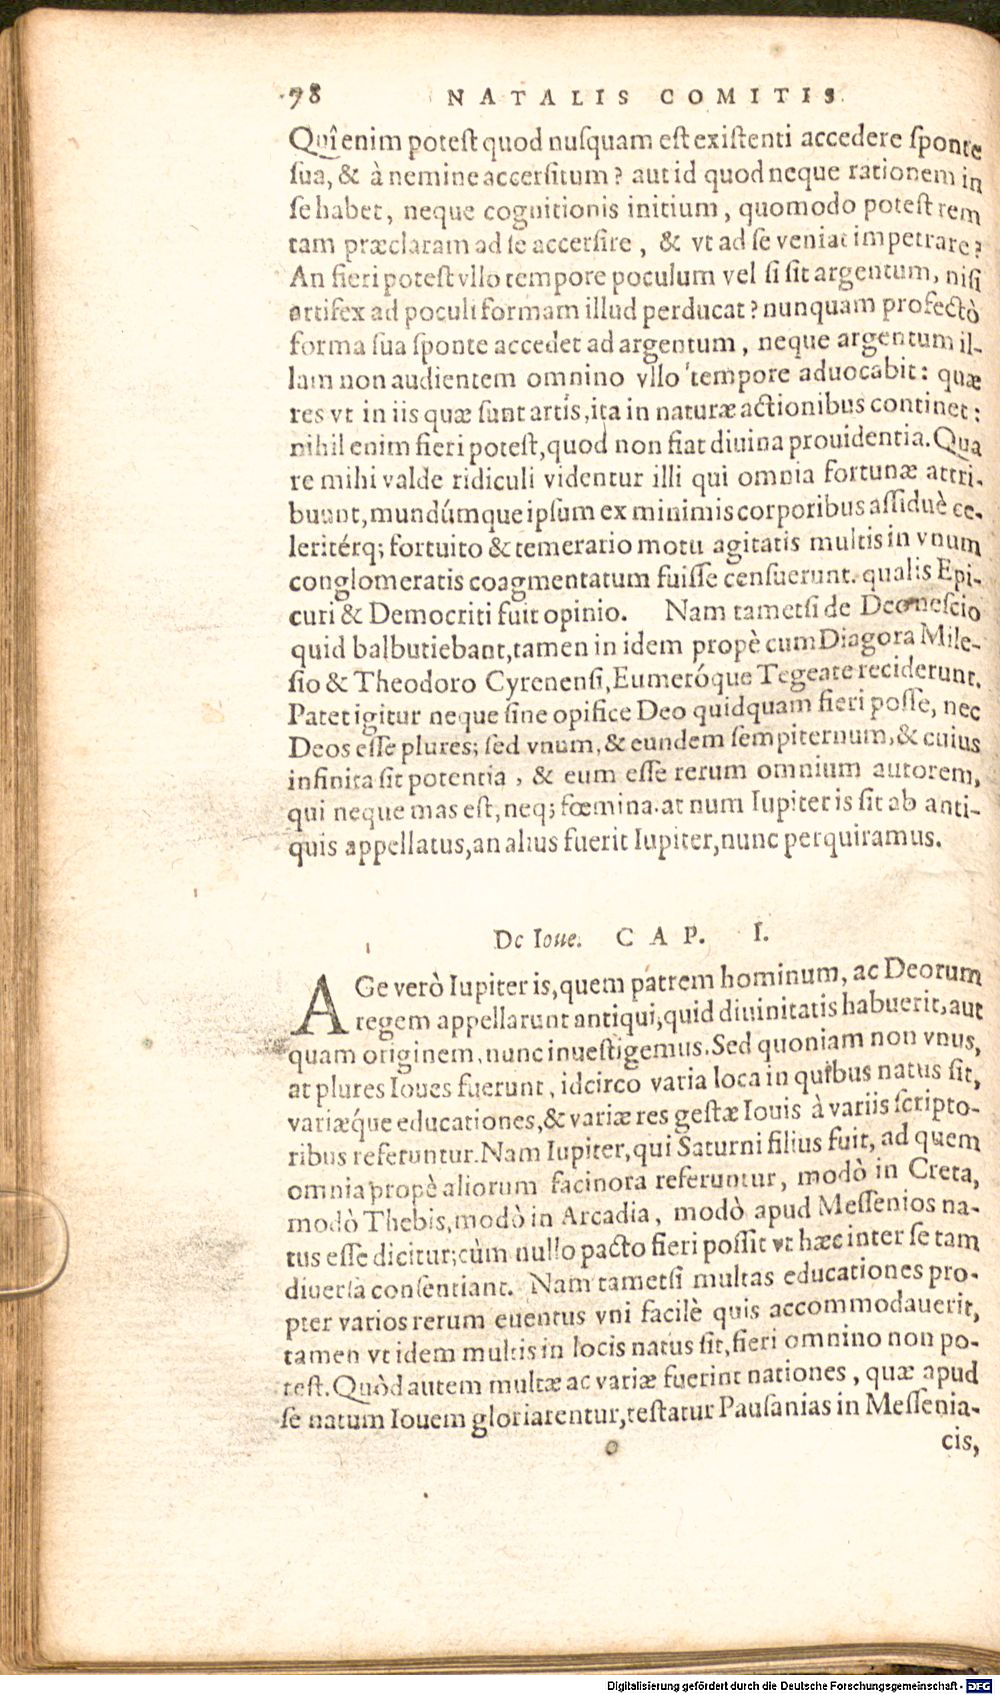 78 NATALIS COMITIS
Quî enim potest quod nusquam est existenti accedere sponte
sua, & à nemine accersitum? aut id quod neque rationem in
se habet, neque cognitionis initium, quomodo potest rem
tam præclaram ad se accersire, & vt ad se veniat impetrare?
An fieri potest vllo tempore poculum vel si sit argentum, nisi
artifex ad poculi formam illud perducat? nunquam profectò
forma sua sponte accedet ad argentum, neque argentum il-
lam non audientem omnino vllo tempore aduocabit: quæ
res vt in iis quæ sunt artis, ita in naturæ actionibus continet:
nihil enim fieri potest, quod non fiat diuina prouidentia. Qua
re mihi valde ridiculi videntur illi qui omnia fortunæ attri-
buunt, mundúmque ipsum ex minimis corporibus assiduè ce-
leritérq; fortuito & temerario motu agitatis multis in vnum
conglomeratis coagmentatum fuisse censuerunt. qualis Epi-
curi & Democriti fuit opinio. Nam tametsi de Deo nescio
quid balbutiebant, tamen in idem propè cum Diagora Mile-
sio & Theodoro Cyrenensi, Eumeróque Tegeate reciderunt.
Patet igitur neque sine opifice Deo quidquam fieri posse, nec
Deos esse plures; sed vnum, & eundem sempiternum, & cuius
infinita sit potentia, & eum esse rerum omnium autorem,
qui neque mas est, neq; fœmina. at num Iupiter is sit ab anti-
quis appellatus, an alius fuerit Iupiter, nunc perquiramus.
De Ioue. CAP. I.
AGe verò Iupiter is, quem patrem hominum, ac Deorum
regem appellarunt antiqui, quid diuinitatis habuerit, aut
quam originem, nunc inuestigemus. Sed quoniam non vnus,
at plures Ioues fuerunt, idcirco varia loca in quibus natus sit,
variæque educationes, & variæ res gestæ Iouis à variis scripto-
ribus referuntur. Nam Iupiter, qui Saturni filius fuit, ad quem
omnia propè aliorum facinora referuntur, modò in Creta,
modò Thebis, modò in Arcadia, modò apud Messenios na-
tus esse dicitur; cùm nullo pacto fieri possit vt hæc inter se tam
diuersa consentiant. Nam tametsi multas educationes pro-
pter varios rerum euentus vni facilè quis accommodauerit,
tamen vt idem multis in locis natus sit, fieri omnino non po-
test. Quòd autem multæ ac variæ fuerint nationes, quæ apud
se natum Iouem gloriarentur, testatur Pausanias in Messenia-
cis,
Digitalisierung gefördert durch die Deutsche Forschungsgemeinschaft - DFG